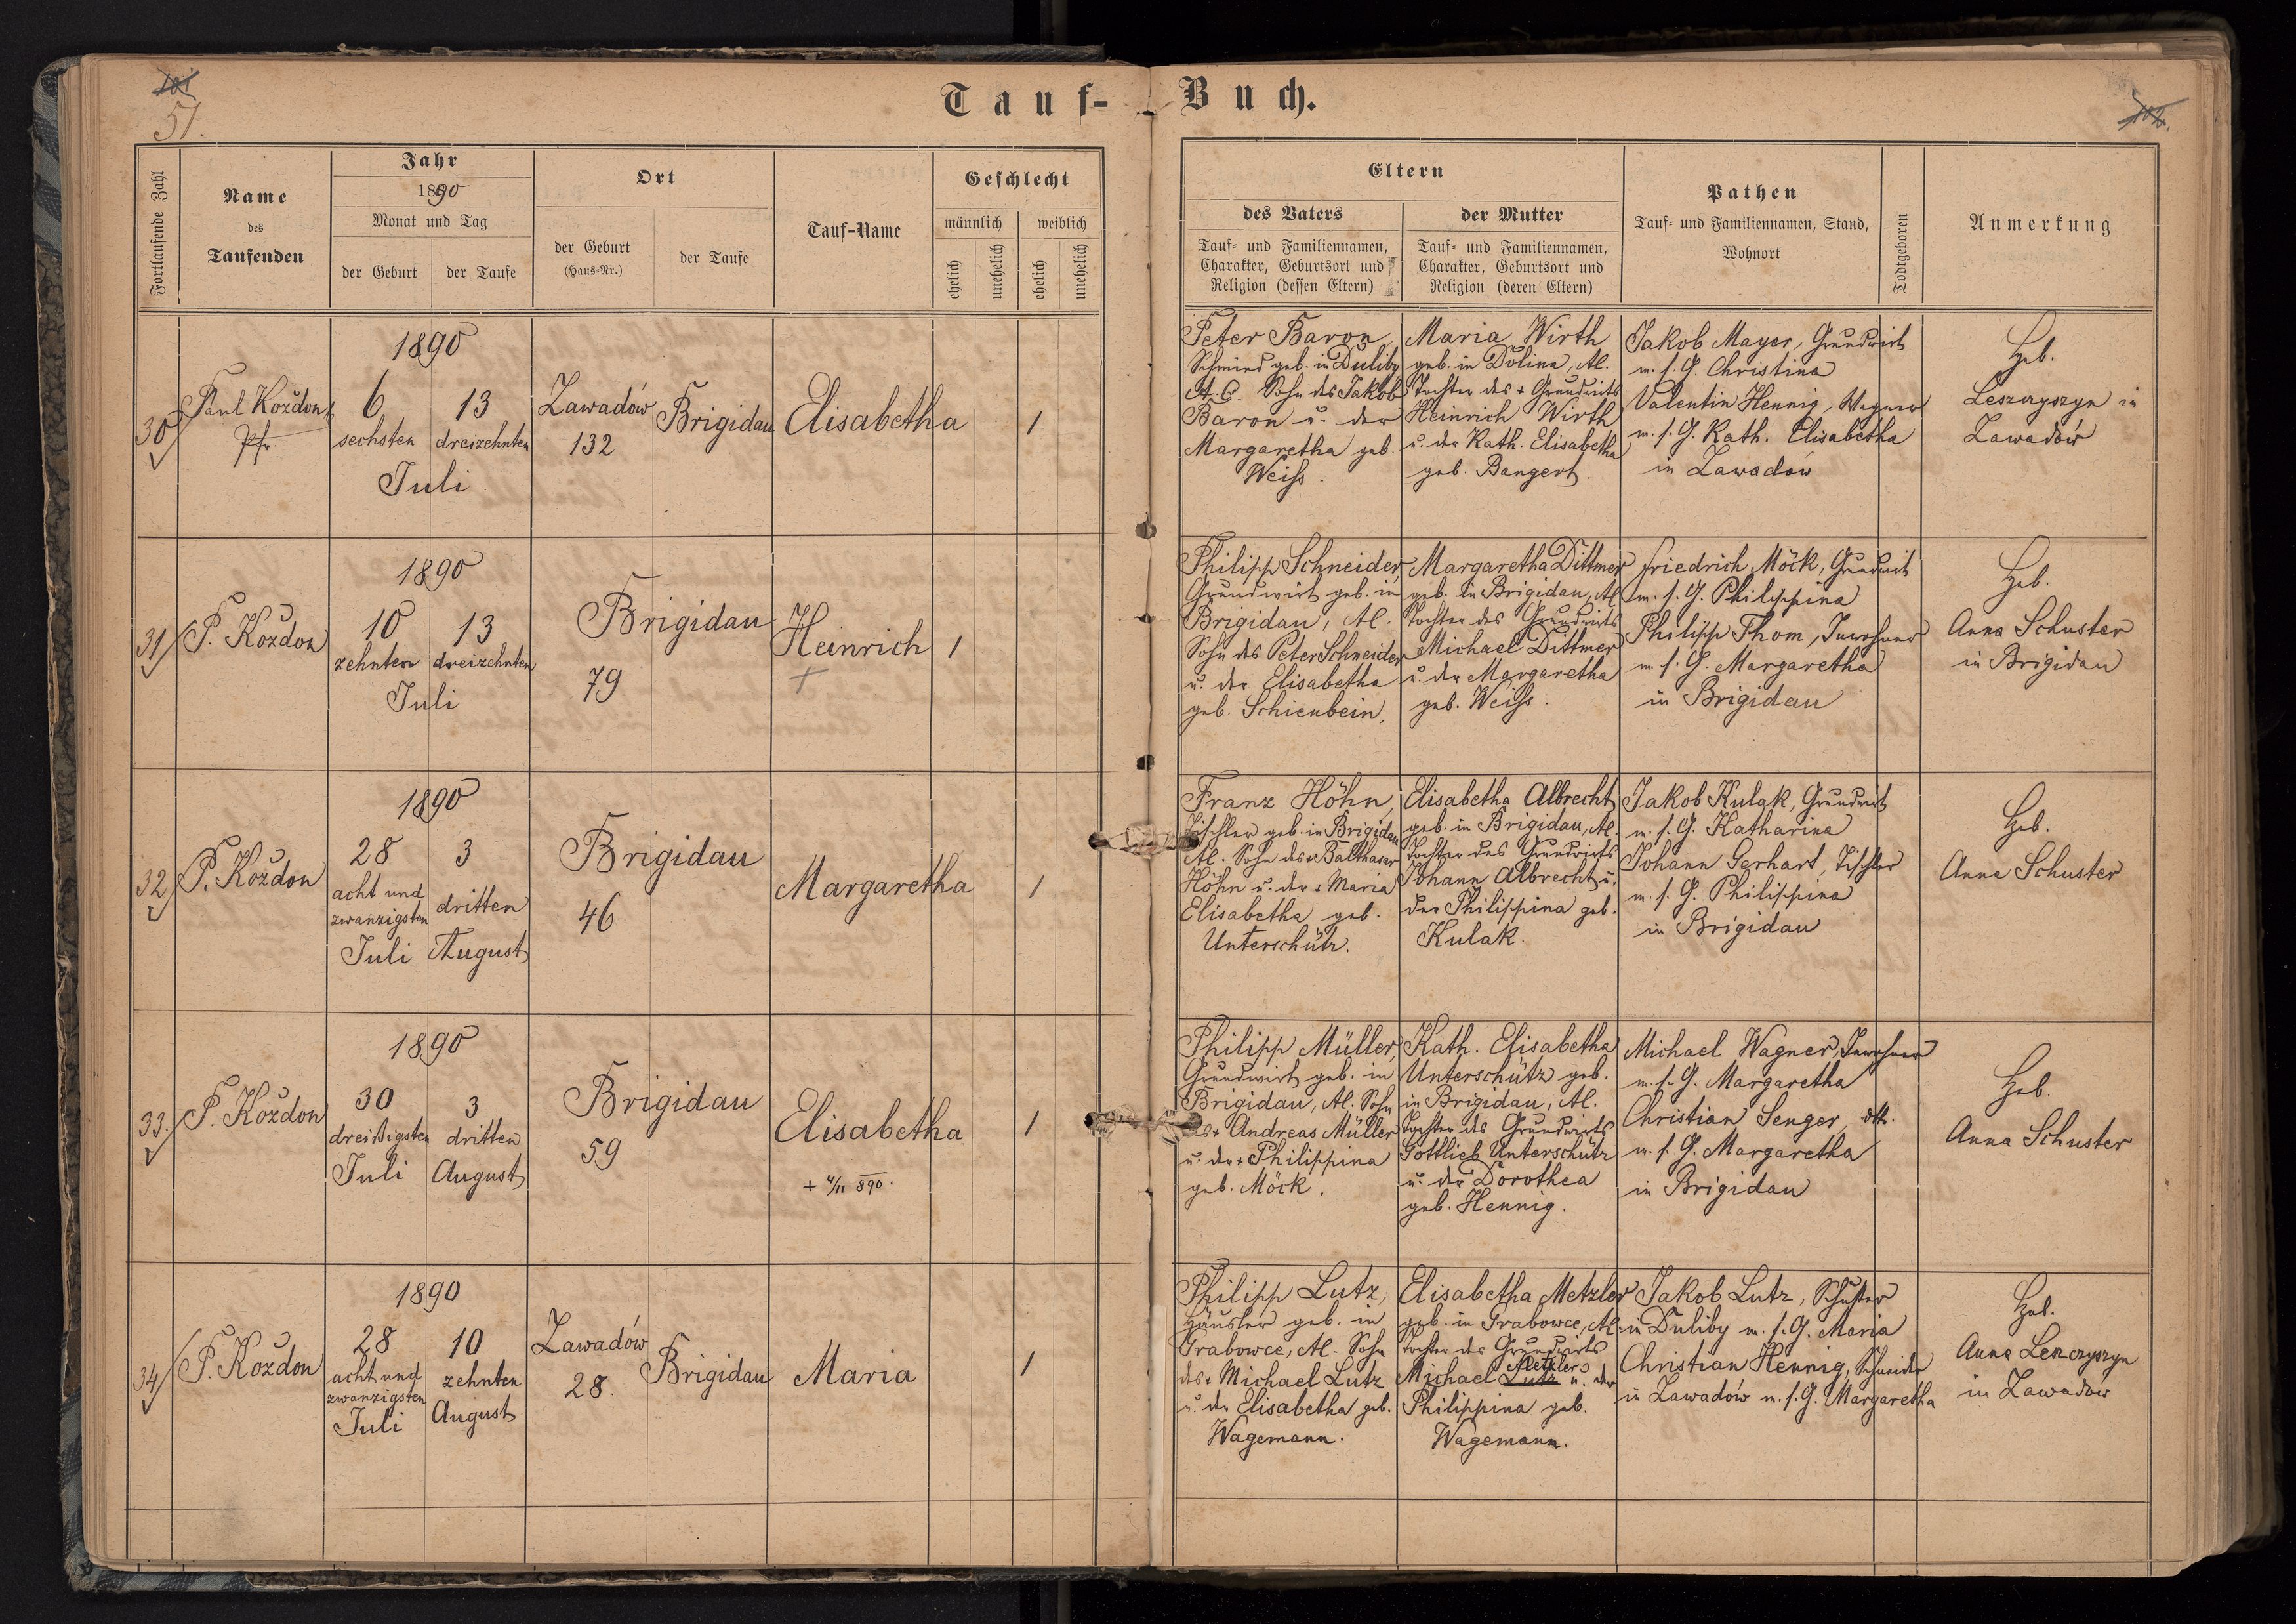 101
51.
Tauf-
Buch.
102.
Fortlaufende Zahl
Name
des
Taufenden
Jahr
1890
Monat und Tag
der Geburt
der Taufe
Ort
der Geburt
(Haus-Nr.)
der Taufe
Tauf-Name
Geschlecht
männlich
weiblich
ehelich
unehelich
ehelich
unehelich
Eltern
des Vaters
Tauf- und Familiennamen,
Charakter, Geburtsort und
Religion (dessen Eltern)
der Mutter
Tauf- und Familiennamen,
Charakter, Geburtsort und
Religion (deren Eltern)
Pathen
Tauf- und Familiennamen, Stand,
Wohnort
Todtgeboren
Anmerkung
30
Paul Kozdon
Pfr.
1890
6
sechsten
13
dreizehnten
Juli
Zawadów
132
Brigidau
Elisabetha
1
Peter Baron,
Schmied geb. in Duliby
A. C. Sohn des Jakob
Baron u. der
Margaretha geb.
Weiss.
Maria Wirth
geb. in Dolina, A C.
Tochter des + Grundwirts
Heinrich Wirth
u. der Kath. Elisabetha
geb. Bangert.
Jakob Mayer, Grundwirt
m. s. G. Christina
Valentin Hennig, Wagner
m. s. G. Kath. Elisabetha
in Zawadów
Heb.
Leszczyszyn in
Zawadów
31
P. Kozdon
1890
10
zehnten
13
dreizehnten
Juli
Brigidau
79
Heinrich
+
1
Philipp Schneider,
Grundwirt geb. in
Brigidau, A C.
Sohn des Peter Schneider
u. der Elisabetha
geb. Schienbein.
Margaretha Dittmer
geb. in Brigidau, A C
Tochter des Grundwirts
Michael Dittmer
u. der Margaretha
geb. Weiss.
Friedrich Möck, Grundwirt
m. s. G. Philippina
Philipp Thom, Inwohner
m. s. G. Margaretha
in Brigidau
Heb.
Anna Schuster
in Brigidau
32
P. Kozdon
1890
28
acht und
zwanzigsten
Juli
3
dritten
August
Brigidau
46
Margaretha
1
Franz Höhn,
Tischler geb. in Brigidau
A C. Sohn des + Balthasar
Höhn u. der + Maria
Elisabetha geb.
Unterschütz.
Elisabetha Albrecht
geb. in Brigidau, A C.
Tochter des Grundwirts
Johann Albrecht u.
der Philippina geb.
Kulak.
Jakob Kulak, Grundwirt
m. s. G. Katharina
Johann Gerhart, Tischler
m. s. G. Philippina
in Brigidau
Heb.
Anna Schuster
33.
P. Kozdon
1890
30
dreißigsten
Juli
3
dritten
August
Brigidau
59
Elisabetha
+ 4/11 890.
1
Philipp Müller,
Grundwirt geb. in
Brigidau, A C. Sohn
des + Andreas Müller
u. der + Philippina
geb. Möck.
Kath. Elisabetha
Unterschütz geb.
in Brigidau, A C.
Tochter des Grundwirts
Gottlieb Unterschütz
u. der Dorothea
geb. Hennig.
Michael Wagner, Inwohner
m. s. G. Margaretha
Christian Senger, dtt.
m. s. G. Margaretha
in Brigidau
Heb.
Anna Schuster
34
P. Kozdon
1890
28
acht und
zwanzigsten
Juli
10
zehnten
August
Zawadów
28.
Brigidau
Maria
1
Philipp Lutz,
Häusler geb. in
Grabowce, A C. Sohn
des + Michael Lutz
u. der Elisabetha geb.
Wagemann.
Elisabetha Metzler
geb. in Grabowce, A C.
Tochter des Grundwirts
Metzler
Michael Lutz u. der
Philippina geb.
Wagemann.
Jakob Lutz, Schuster
in Duliby m. s. G. Maria
Christian Hennig, Schneider
in Zawadów m. s. G. Margaretha
Heb.
Anna
in Zawadów